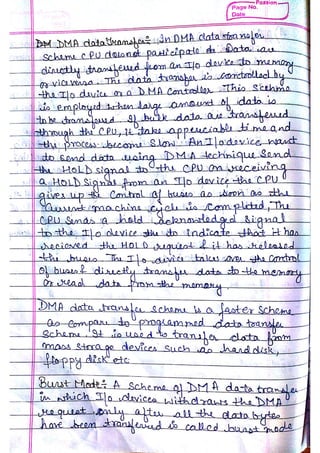 Passion
Page No.
Date
DMA data transfer:- In DMA data transfer
scheme CPU does not participate. Data are
directly transferred from an I/o device to memory
or viceversa. The data transfer is controlled by
the I/o device or a DMA Controller. This Scheme
is employed when large amount of data is
to be transferred. If bulk data are transferred
through the CPU, it take appreciable time and
the process become slow. An I/o device want
to send data using DMA technique Send
the HOLD signal to the CPU. On receiving
a HOLD Signal from an I/o device the CPU
gives up the control of buses as soon as the
current machine cycle is completed, The
CPU Sends a hold acknowledged signal
to the I/o device to indicate that it has
recieved the HOLD request & it has released
the buses. The I/o device takes over the control
of buses & directly transfer data to the memory
or read data from the memory.
DMA data transfer scheme is a faster scheme
as compare to programmed data transfer
Scheme. It is used to transfer data from
mass storage devices such as hard disk,
floppy disk etc
Burst Mode:- A scheme of DMA data transfer
in which I/o device withdraws the DMA
request only after all the data bytes
have been transferred is called burst mode